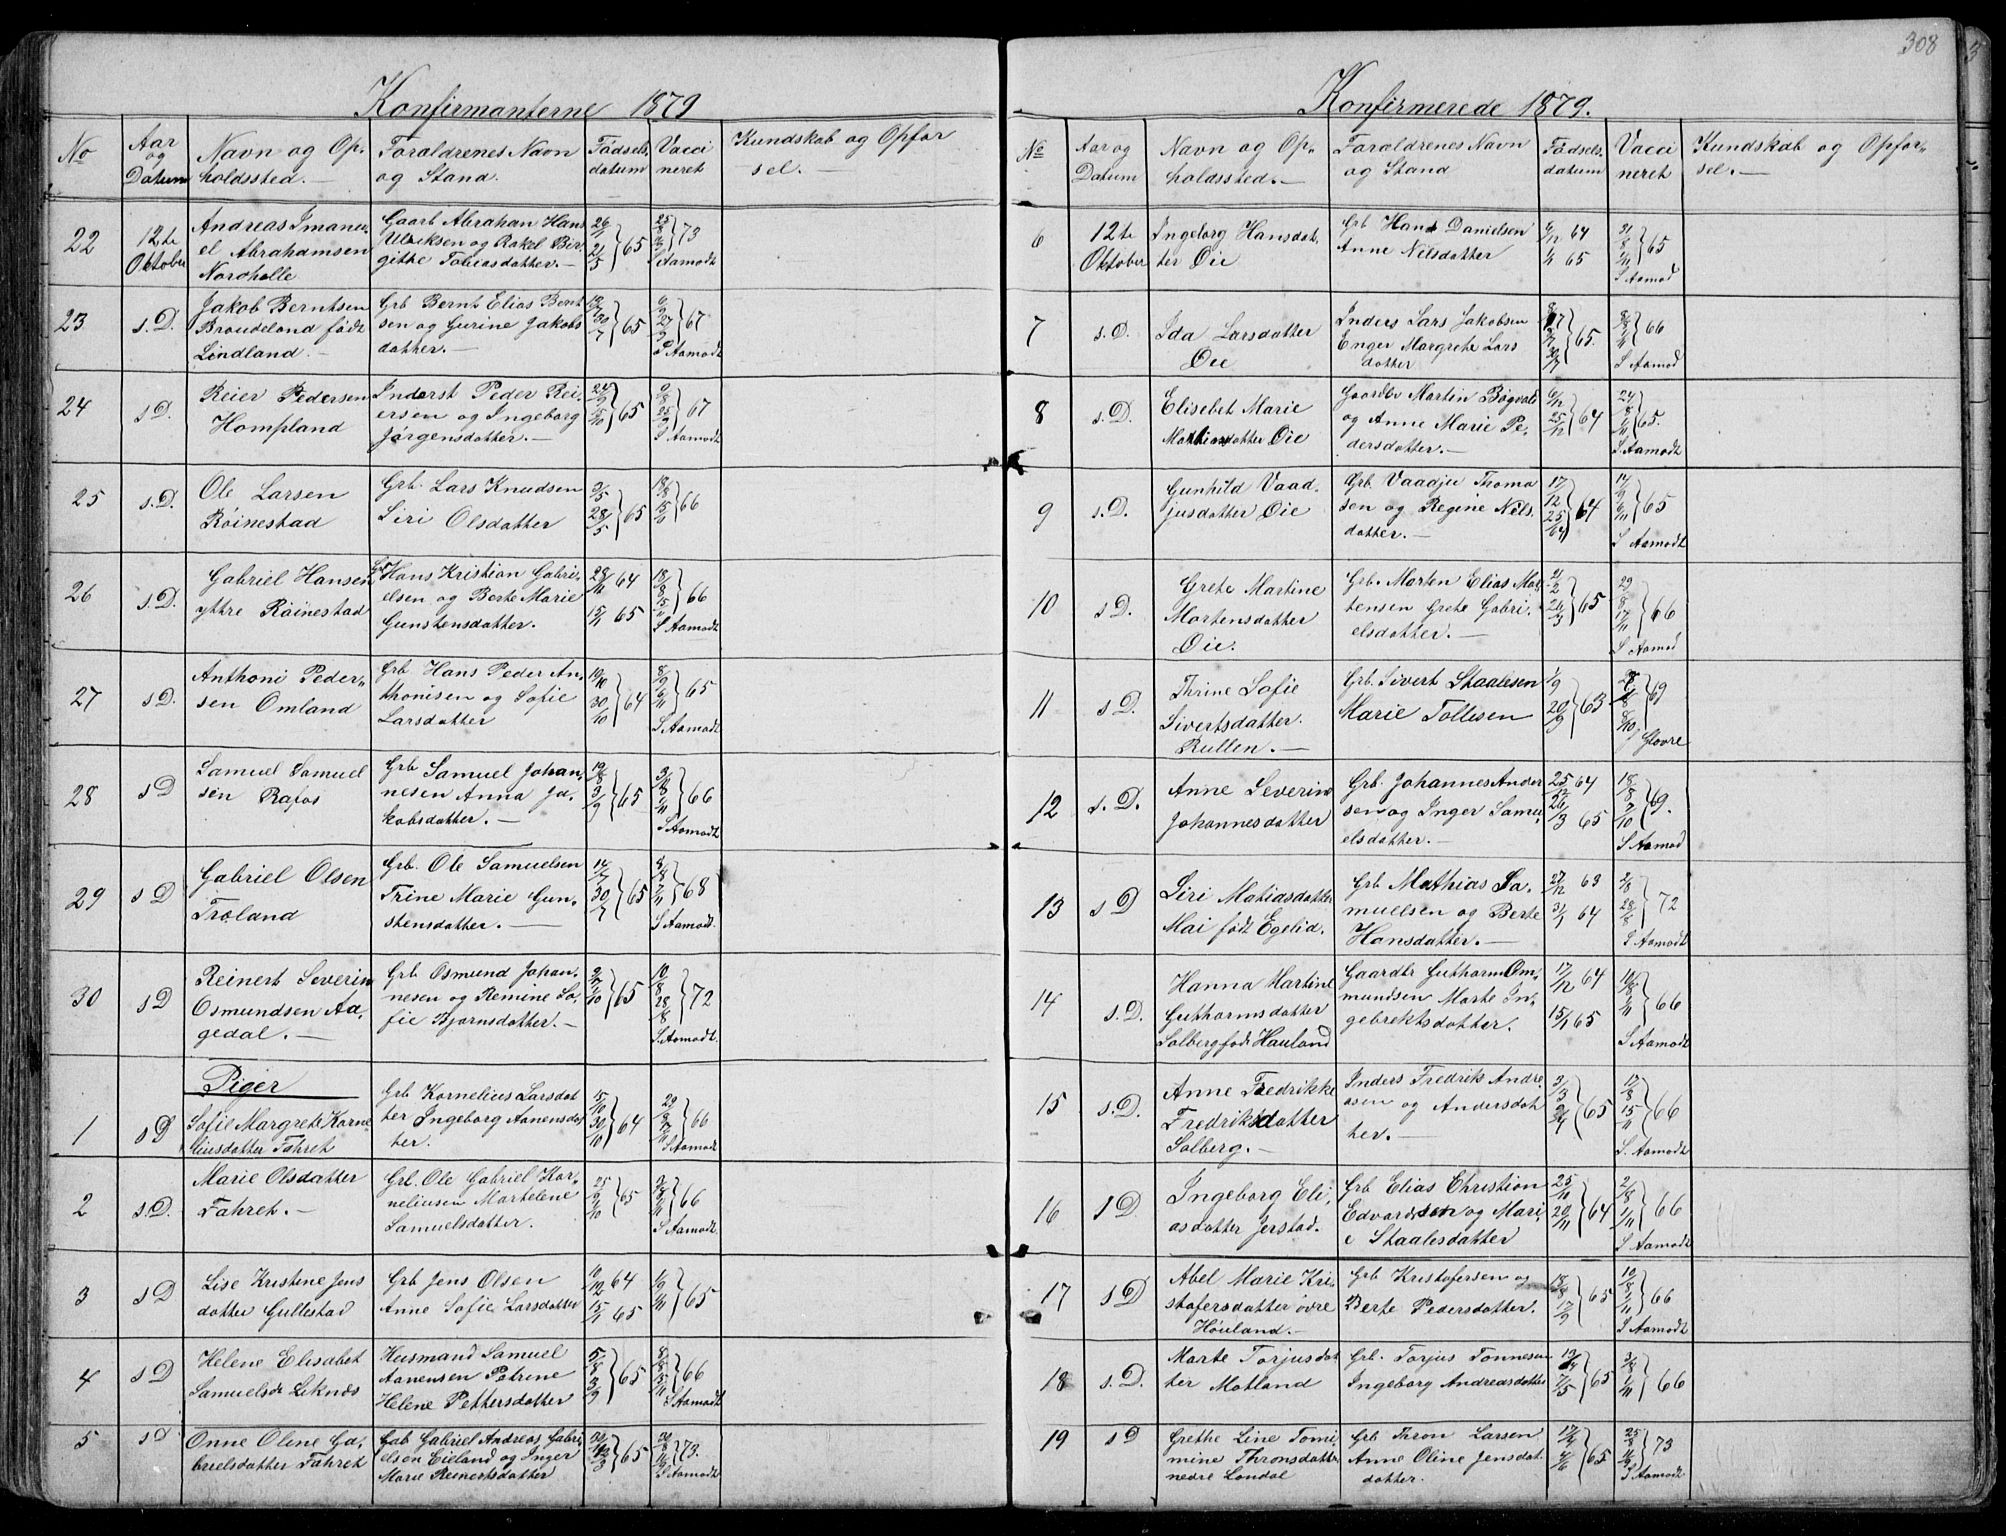 308
Konfirmanterne 1879
No
Aar og Datum
Navn og Opholdssted.
Forældrenes Navn og Stand.
Födselsdatum
Vaccineret
Kundskab og Opförsel.
22
12te Oktober
Andreas Imanu-
el Abrahamsen
Nordhelle
Gaarb Abraham Hans
Ulriksen og Rakel Bir-
gitte Tobiasdatter.
65
73
S Aamodt
23
s.D.
Jakob Berntsen
Braudeland födt
Lindland.
Grb Bernt Elias Bernt
sen og Gurine Jakobs
datter.
65
67
S Aamodt
24
s D.
Reier Pedersen
Hompland
Inderst Peder Rei-
ersen og Ingeborg
Jörgensdatter.
65
67
S Aamodt
25
s.D.
Ole Larsen
Röinestad
Grb. Lars Knudsen
Siri Olsdatter
3/5
28/5
65
66
26
s.D.
Gabriel Hansen
ytre Röinestad
Grb Hans Kristian Gabri-
elsen og Berte Marie
Gunstensdatter.
64
65
66
S Aamodt
27
s D.
Anthoni Peder-
sen Omland
Grb Hans Peder An-
thonisen og Sofie
Larsdatter
19/10
30/10
64
65
S. Aamodt
28
s D
Samuel Samuel
sen Rafos
Grb Samuel Johan-
nesen Anna Ja-
kobsdatter.
65
66
S Aamodt
29
s D
Gabriel Olsen
Tröland
Grb. Ole Samuelsen
Trine Marie Gun-
stensdatter.
14/7
30/7
65
68
S Aamodt.
30
s D
Reinert Severin
Osmundsen Aa-
gedal.
Grb Osmund Johan-
nesen og Remine So-
fie Bjornsdatter.
65
72
S. Aamodt.
Piger
1
s D
Sofie Margrete Korne
liusdatter Fahret
Grb Kornelius Larsdat
ter Ingeborg Aanensdat
ter.
15/10
30/10
64
66
S Aamodt
2
s.D.
Marie Olsdatter
Fahret.
Grb. Ole Gabriel Kor-
neliusen Martelene
Samuelsdatter.
65
66
S Aamodt
3
s D
Lise Kristine Jens
datter Gullestad
Grb Jens Olsen
Anne Sofie Larsdatter
64
15/1 65
65
4
s D
Helene Elisabet
Samuelsd Leknes
Husmand Samuel
Aanensen Patrine
Helene Pettersdatter
5/8
3/9
65
66
S Aamodt
5
s D
Onne Oline Ga-
brielsdatter Fahret
Gab Gabriel Andreas Gabri-
elsen Eieland og Inger
Marie Reinertsdatter
65
73.
S Aamodt
Konfirmerede 1879.
No
Aar og Datum
Navn og Opholdssted.
Forældrenes Navn og Stand
Födselsdatum
Vaccineret
Kundskab og Opförsel.
6
12te Oktober
Ingeborg Hansdat-
ter Öie
Grb Hans Danielsen
Anne Nilsdatter
64
65
65
S Aamod
7
s.D.
Ida Larsdatter
Öie
Inders Lars Jakobsen
Enger Margrete Lars
datter
65.
66
S Aamod
8
s.D.
Elisebet Marie
Martinsdatter Öie
Gaardbr Martin Bögvald
og Anne Marie Pe-
dersdatter.
64
65.
S. Aamodt
9
s.D.
Gunhild Vaad-
jusdatter Öie
Grb Vaadju Thoma
sen og Regine Nils-
datter.
64
65
S Aamodt
10
s D.
Grete Martine
Mortensdatter
Öie.
Grb. Morten Elias Mor
tensen Grete Gabri-
elsdatter.
65
66
S Aamod
11
s D.
Thrine Sofie
Sivertsdatter.
Rullen.
Grb. Sivert Staalesen
Marie Tollesen
1/9
20/9
63
69
12
s. D.
Anne Severine
Johannesdatter
Grb. Johannes Ander
sen og Inger Samu-
elsdatter.
64
65
69.
S Aamod
13
s D
Siri Matiasdatter
Mai födt Egelid.
Grb Mathias Sa-
muelsen og Berte
Hansdatter.
27/12 63
3/1 64
72
S Aamodt
14
s.D.
Hanna Martine
Guthormsdatter
Solberg föd Hauland
Gaardbr Guthorm Om-
mundsen Marte In-
gebrektsdatter.
17/12 64
15/1 65
66
S Aamodt
15
s.D.
Anne Fredrikke
Fredriksdatter
Solberg.
Inders Fredrik Andre
asen og Andersdat
ter.
65
66
S. Aamodt
16
s D
Ingeborg Eli-
asdatter Jerstad.
Grb Elias Christian
Edvardsen og Mari-
e Staalesdatter
25/10
20/11
64
66
S Aamodt
17
s D
Abel Marie Kri-
stofersdatter övre
Höuland.
Grb Kristofersen og
Berte Pedersdatter.
18/8
17/9
65
66
S Aamodt
18
s.D.
Marte Torjusdat
ter Motland
Grb. Torjus Tonnesen
Ingeborg Andreasdatter
19/4
7/5
65
66
19
s D
Grethe Line Tomi-
mine Thronsdatter
nedre Londal
Grb Thron Larsen
Anne Oline Jensdat
datter.
65
73
S Aamodt